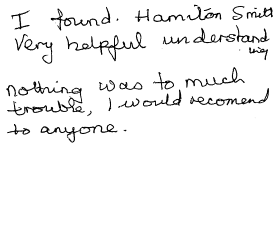 I found. Hamilton Smith
Very helpful understand
ing
nothing was to much
trouble, I would recomend
to anyone.